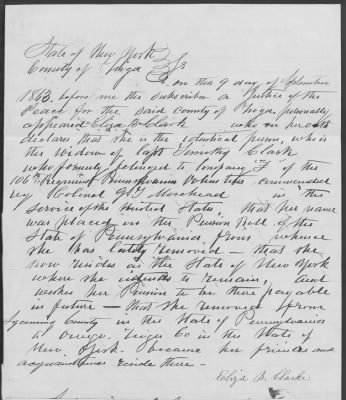 State of New York
County of Tioga } SS
on the 9 day of September
1863. before me the subscriber a Justice of the
Peace for the said county of Tioga, personally
appeared Eliza B Clark who on her oath
declares that she is the identical person, who is
the widow of Capt Timothy Clark
who formerly belonged to company "F" of the
106th Regiment Pennsylvania Volunteers commanded
by Colonel Morehead in the
Service of the United States, that her name
was placed on the Pension Roll of the
State of Pennsylvania from whence
she has lately removed – that she
now resides in the State of New York
where she intends to remain, and
wishes her Pension to be there payable
in future – that she removed from
Lycoming County in the State of Pennsylvania
to Owego Tioga Co in the State of
New York. because her friends and
acquaintances reside there –
Eliza B. Clark